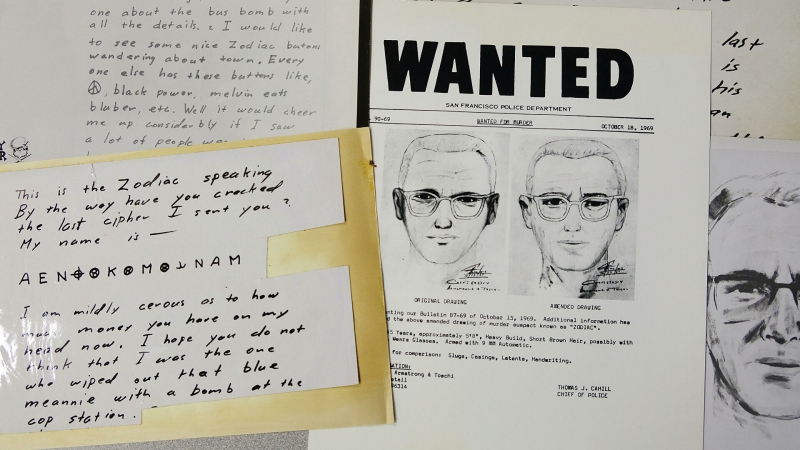 one about the bus bomb with
all the details. I would like
to see some nice Zodiac butons
wandering about town. Every
one else has these buttons like,
black power, melvin eats
blaber, etc. Well it would cheer
me up considerbly if I saw
a lot of people
last
is
his
This is the Zodiac speaking
By the way have you cracked
the last cipher I sent you?
My name is —
A E N K M N A M
I am mildly cerous as to how
much money you have on my
head now. I hope you do not
think that I was the one
who wiped out that blue
meannie with a bomb at the
cop station.
WANTED
SAN FRANCISCO POLICE DEPARTMENT
90-69 WANTED FOR MURDER OCTOBER 18, 1969
ORIGINAL DRAWING AMENDED DRAWING
our Bulletin 87-69 of October 13, 1969. Additional information has
the above amended drawing of murder suspect known as "ZODIAC".
Years, approximately 5'8", Heavy Build, Short Brown Hair, possibly with
Wears Glasses. Armed with 9 MM Automatic.
for comparison: Slugs, Casings, Latents, Handwriting.
Armstrong & Toschi
THOMAS J. CAHILL
CHIEF OF POLICE